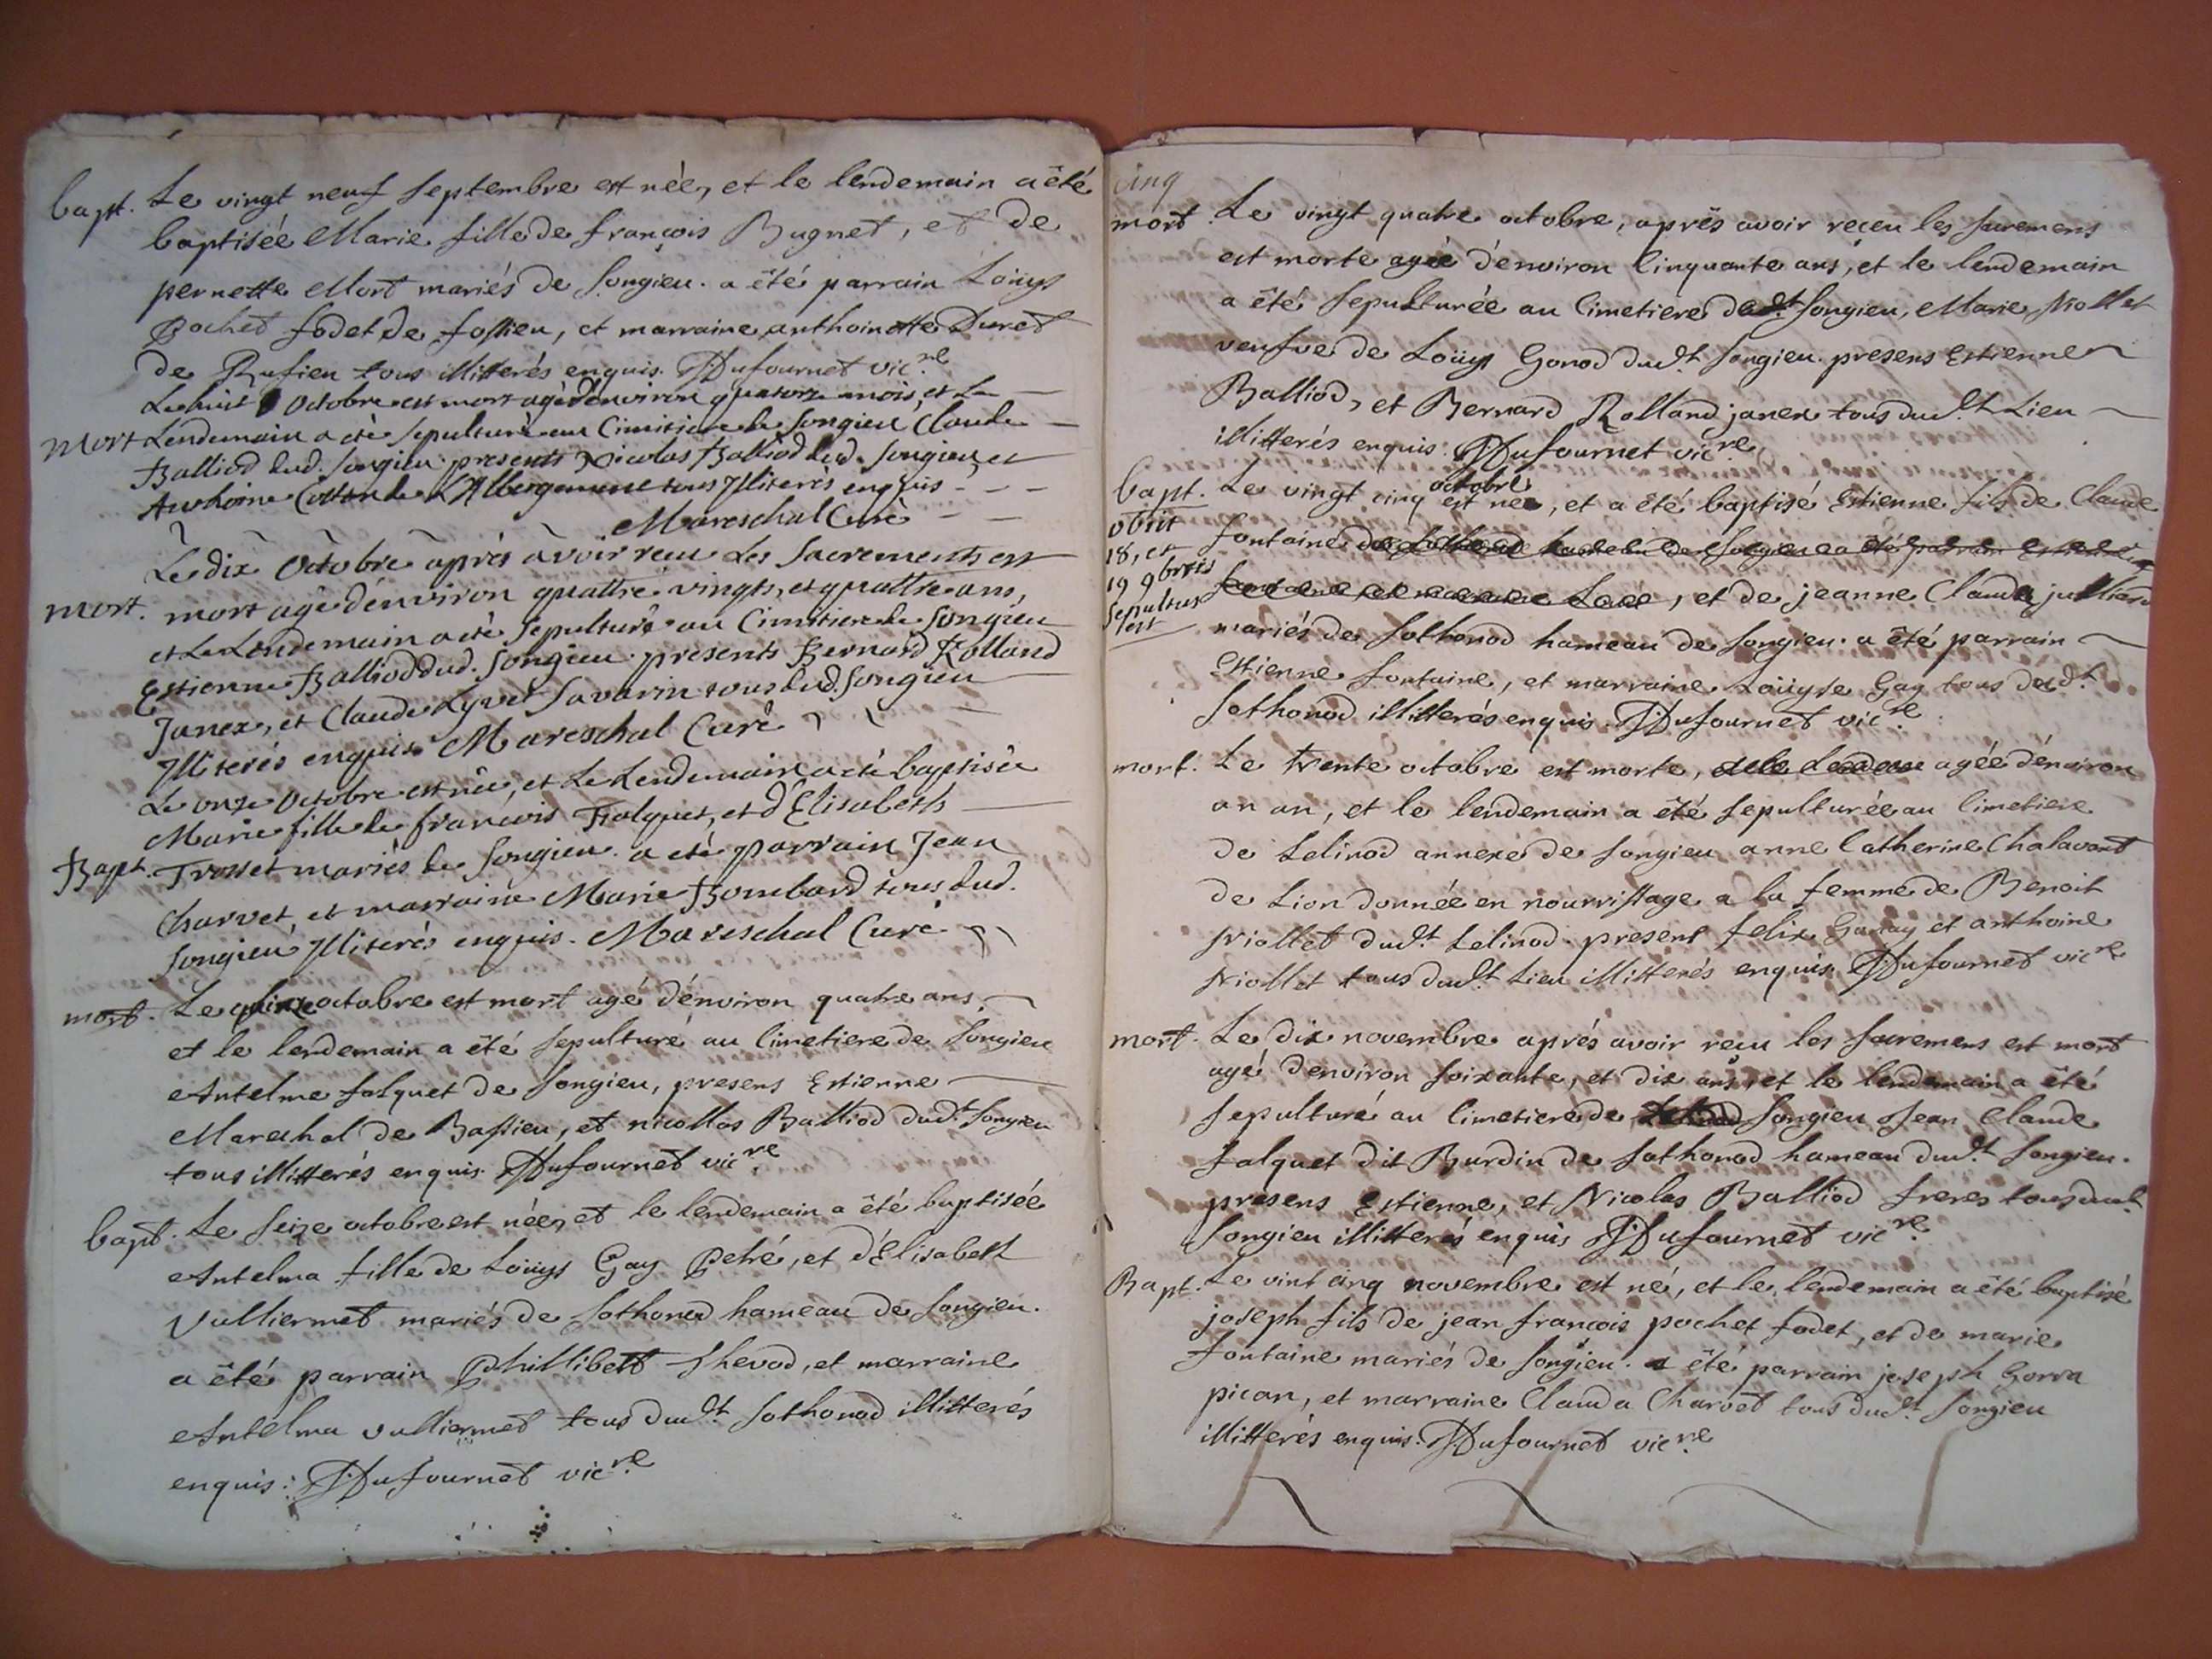 bapt. Le vingt neuf Septembre est née, et le lendemain a êté
baptisée Marie fille de françois Bugnet, et de
pernette Mort mariés de Songieu. a êté parrain Loüys
Pochet fodet de fossieu, et marraine anthoinette Duret
de Rufieu tous illitterés enquis. Dufournet vic.re
Le huit Octobre est mort agé d'environ quatorze mois, et Le
mort Lendemain a eté sepulturé au Cimitiere de Songieu Claude
Balliod dud. Songieu presents Nicolas Balliod dud. Songieu, et
Anthoine Cottin de L'Albergement tous Illiterés enquis
Mareschal Curé
Le dix Octobre après avoir reçu Les Sacrements est
mort. mort agé d'environ quattre vingts, et quattre ans,
et Le Lendemain a eté sepulturé au Cimitiere de Songieu
Estienne Balliod dud. Songieu. presents Bernard Rolland
Janex, et Claude Lyvet Savarin tous dud. Songieu
Illiterés enquis Mareschal Curé
Le onze Octobre est née, et Le Lendemain a eté baptisée
Marie fille de françois Falquet, et d'Elisabeth
Bapt. Trosset mariés de Songieu. a eté parrain Jean
Charvet, et marraine Marie Bombard tous dud.
Songieu Illiterés enquis. Mareschal Curé
mort. Le quinze octobre est mort agé d'environ quatre ans
et le lendemain a êté sepulturé au Cimetiere de Songieu
Antelme falquet de Songieu, presens Estienne
Marechal de Bassieu, et nicollas Balliod dud.t Songieu
tous illitterés enquis. Dufournet vic.re
bapt. Le Seize octobre est née, et le lendemain a êté baptisée
Antelma fille de Loüys Gay Petré, et d'Elisabeth
Vulliermet mariés de Sothonod hameau de Songieu.
a êté parrain Phillibett Thevod, et marraine
Antelma vulliermet tous dud.t Sothonod illitterés
enquis: Dufournet vic.re
cinq
mort. Le vingt quatre octobre, après avoir reçeu les Sacremens
est morte agée d'environ Cinquante ans, et le lendemain
a êté Sepulturée au Cimetiere dud.t Songieu, Marie Niollet
veufve de Loüys Gonod dud.t Songieu. presens Estienne
Balliod, et Bernard Rolland janex tous dud.t Lieu
illitterés enquis. Dufournet vic.re
octobre
bapt. Le vingt cinq est née, et a êté baptisé Estienne fils de Claude
obiit fontaine de Sothonod hameau de Songieu a été parrain Estienne
18, et
19 9bris fontaine, et marraine Loüe, et de jeanne Clauda julliard
sepultus
est mariés de Sothonod hameau de Songieu. a êté parrain
Estienne fontaine, et marraine Loüyse Gay tous dud.t
Sothonod illitterés enquis. Dufournet vic.re
mort. Le trente octobre est morte, agée d'environ
un an, et le lendemain a êté Sepulturée au Cimetiere
de Lelinod annexe de Songieu anne Catherine Chalavant
de Lion donnée en nourrissage a la femme de Benoit
Niollet dud.t Lelinod. present felix Ganay et anthoine
Niollet tous dud.t Lieu illitterés enquis. Dufournet vic.re
mort. Le dix novembre après avoir reçu les Sacremens est mort
agé d'environ Soixante, et dix ans, et le lendemain a êté
Sepulturé au Cimetiere de Songieu Jean Claude
falquet dit Burdin de Sothonod hameau dud.t Songieu.
presens Estienne, et Nicolas Balliod freres tous dud.t
Songieu illitterés enquis Dufournet vic.re
Bapt. Le vint cinq novembre est né, et le lendemain a êté baptisé
joseph fils de jean françois pochet fodet, et de marie
fontaine mariés de Songieu. a êté parrain joseph Gorra
pican, et marraine Clauda Charvet tous dud.t Songieu
illitterés enquis. Dufournet vic.re